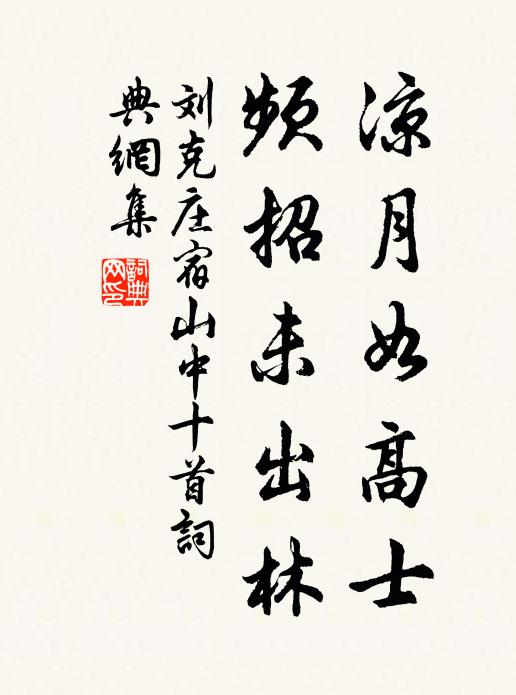 凉月如高士
頻招未出林
刘克庄宿山中十首詞
典網集
詞典
网印